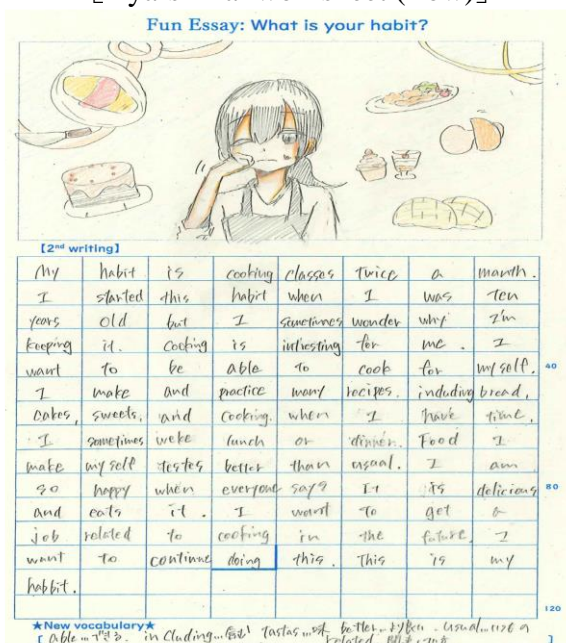 Fun Essay: What is your habit?
【2nd writing】
My habit is cooking classes twice a manth.
I started this habit when I was ten
years old but I sometimes wonder why I'm
keeping it. Cooking is intresting for me. I
want to be able to cook for my self. 40
I make and practice many recipes. including bread,
cakes, sweets, and cooking. when I have time,
I sometimes lunch or dinner. Food I
make my self testes better than usual. I am
so happy when everyone says It is delicious 80
and eats it. I want to get a
job related to cooking in the future. I
want to continue doing this. This is my
habbit.
120
★New vocabulary★
[ able...できる. in Cluding...含む tastas...味 better...より usual...
related 関 ]